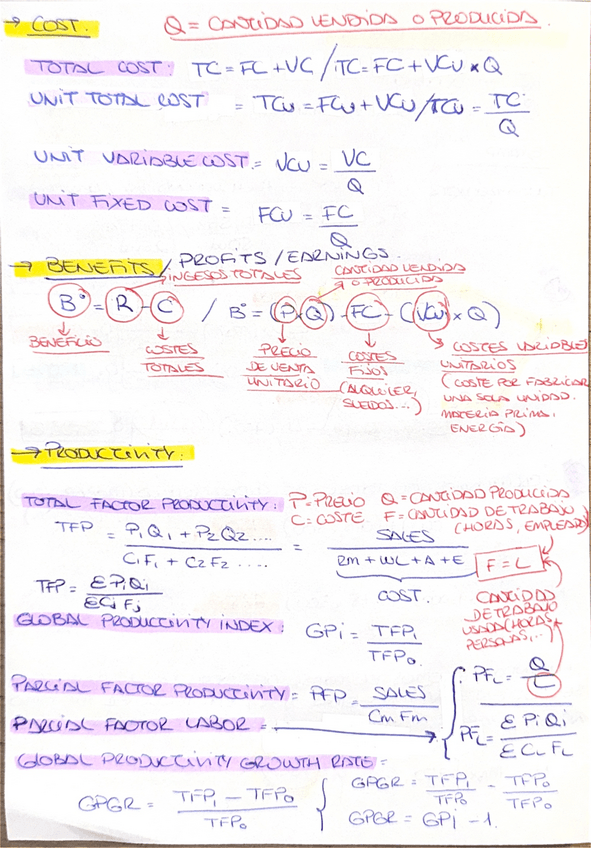 → COST. Q = CANTIDAD VENDIDA O PRODUCIDA.
TOTAL COST: TC = FC + VC / TC = FC + VCu × Q
UNIT TOTAL COST = TCu = FCu + VCu / TCu = TC / Q
UNIT VARIABLE COST = VCu = VC / Q
UNIT FIXED COST = FCu = FC / Q
→ BENEFITS / PROFITS / EARNINGS.
INGESOS TOTALES CANTIDAD VENDIDA O PRODUCIDA
Bº = R - C / Bº = (P × Q) - FC - (VCu × Q)
BENEFICIO
COSTES TOTALES
PRECIO DE VENTA UNITARIO
COSTES FIJOS (ALQUILER, SUELDOS...)
COSTES VARIABLES UNITARIOS (COSTE POR FABRICAR UNA SOLA UNIDAD. MATERIA PRIMA, ENERGÍA)
→ PRODUCTIVITY.
TOTAL FACTOR PRODUCTIVITY: P = PRECIO Q = CANTIDAD PRODUCIDA
C = COSTE F = CANTIDAD DE TRABAJO (HORAS, EMPLEADO)
TFP = P₁Q₁ + P₂Q₂ .... / C₁F₁ + C₂F₂ .... = SALES / RM + WL + A + E
COST.
F = L
TFP = Σ Pi Qi / Σ Cj Fj
CANTIDAD DE TRABAJO USADA (HORAS, PERSONAS,...)
GLOBAL PRODUCTIVITY INDEX: GPi = TFP₁ / TFP₀.
PARCIAL FACTOR PRODUCTIVITY = PFP = SALES / Cm Fm
PARCIAL FACTOR LABOR = → PFL = Q / L
PFL = Σ Pi Qi / Σ CL FL
GLOBAL PRODUCTIVITY GROWTH RATE =
GPGR = TFP₁ - TFP₀ / TFP₀
GPGR = TFP₁ / TFP₀ - TFP₀ / TFP₀
GPGR = GPi - 1.